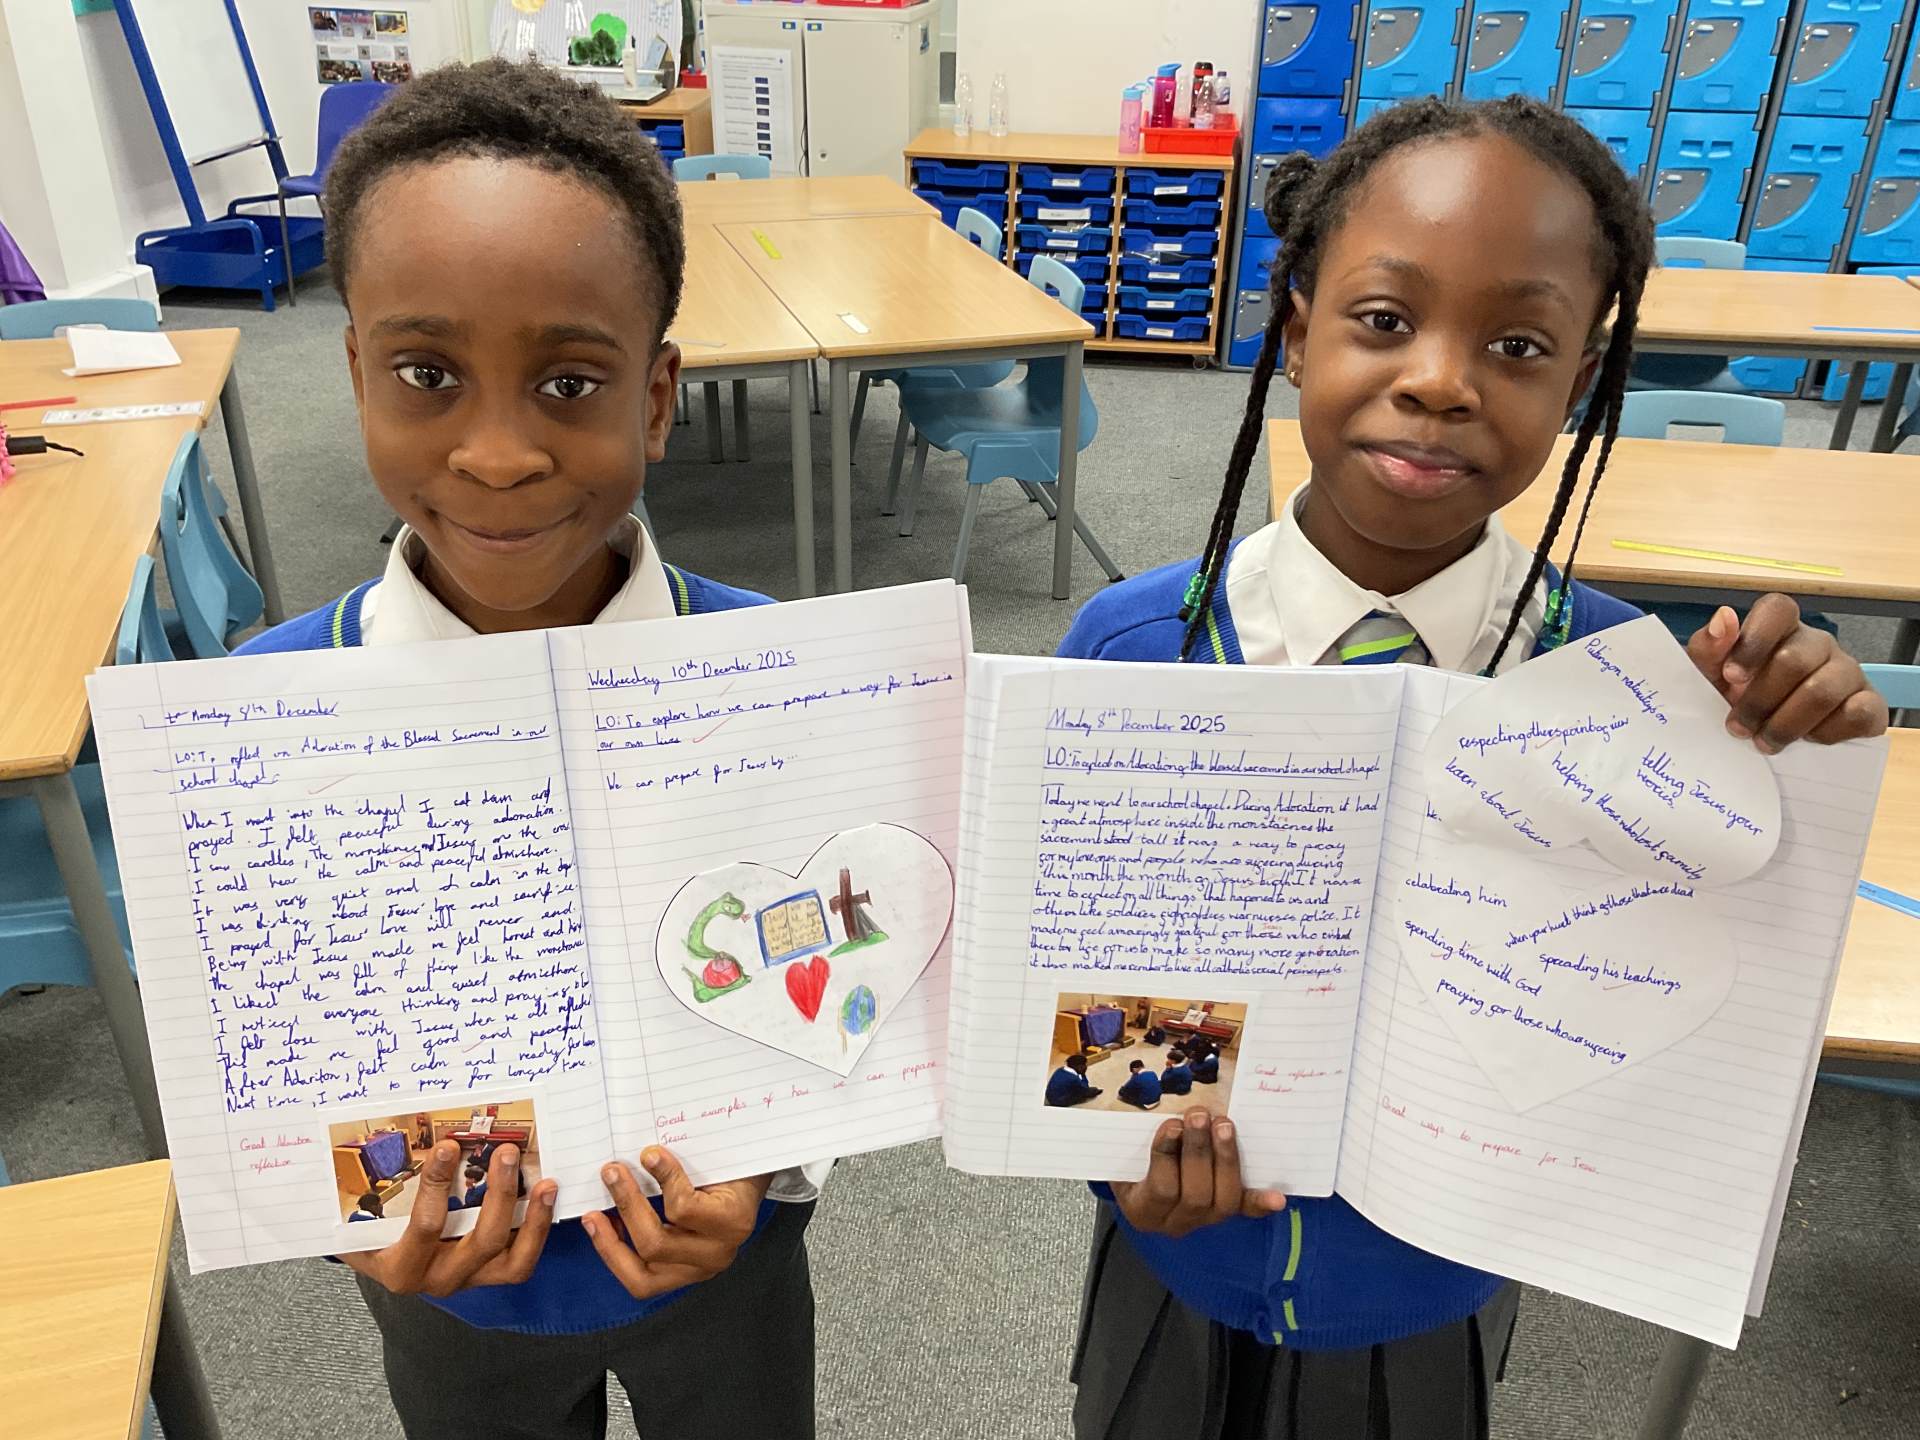 Monday 8th December
LO: To reflect on Adoration of the Blessed Sacrament in our
school chapel
When I went into the chapel I sat down and
prayed. I felt peaceful during adoration.
I saw candles, The monstance and Jesus on the cross
I could hear the calm and peaceful atmisphere.
It was very quiet and I calm in the
I was thinking about Jesus' love and sacrifice.
I prayed for Jesus' love will never end.
Being with Jesus made me feel honest and
The chapel was full of things like the monstrance
I liked the calm and quiet atmisthere
I noticed everyone thinking and praying
I felt close with Jesus when we all reflected
This made me feel good and peaceful
After Adariton, felt calm and ready for
Next time, I want to pray for longer time.
Great Adoration
reflection
Wednesday 10th December 2025
LO: To explore how we can prepare a way for Jesus in
our own lives
We can prepare for Jesus by...
Great examples of how we can prepare
Jesus.
Monday 8th December 2025
LO: To reflect on Adoration of the blessed sacrament in our school chapel
Today we went to our school chapel. During Adoration it had
a great atmosphere inside the monstacnes the
sacrement stood tall it was a way to pray
for my love ones and people who are suffering during
this month the month of Jesus birth. It was a
time to reflect on all things that hapend to us and
others like soldiers firefighters war nurses police. It
made me feel amazingly greatful for those who
there life for us to make so many more generation
it also made me remember to live all catholic social
Great reflection
Adoration.
Puting on nativitys on
respecting others point of view
learn about Jesus
helping those who lost family
telling Jesus your
worries.
We
celabrating him
when your hurt think of those that are dead
spending time with God
spreading his teachings
praying for those who are suffering
Great ways to prepare for Jesus.